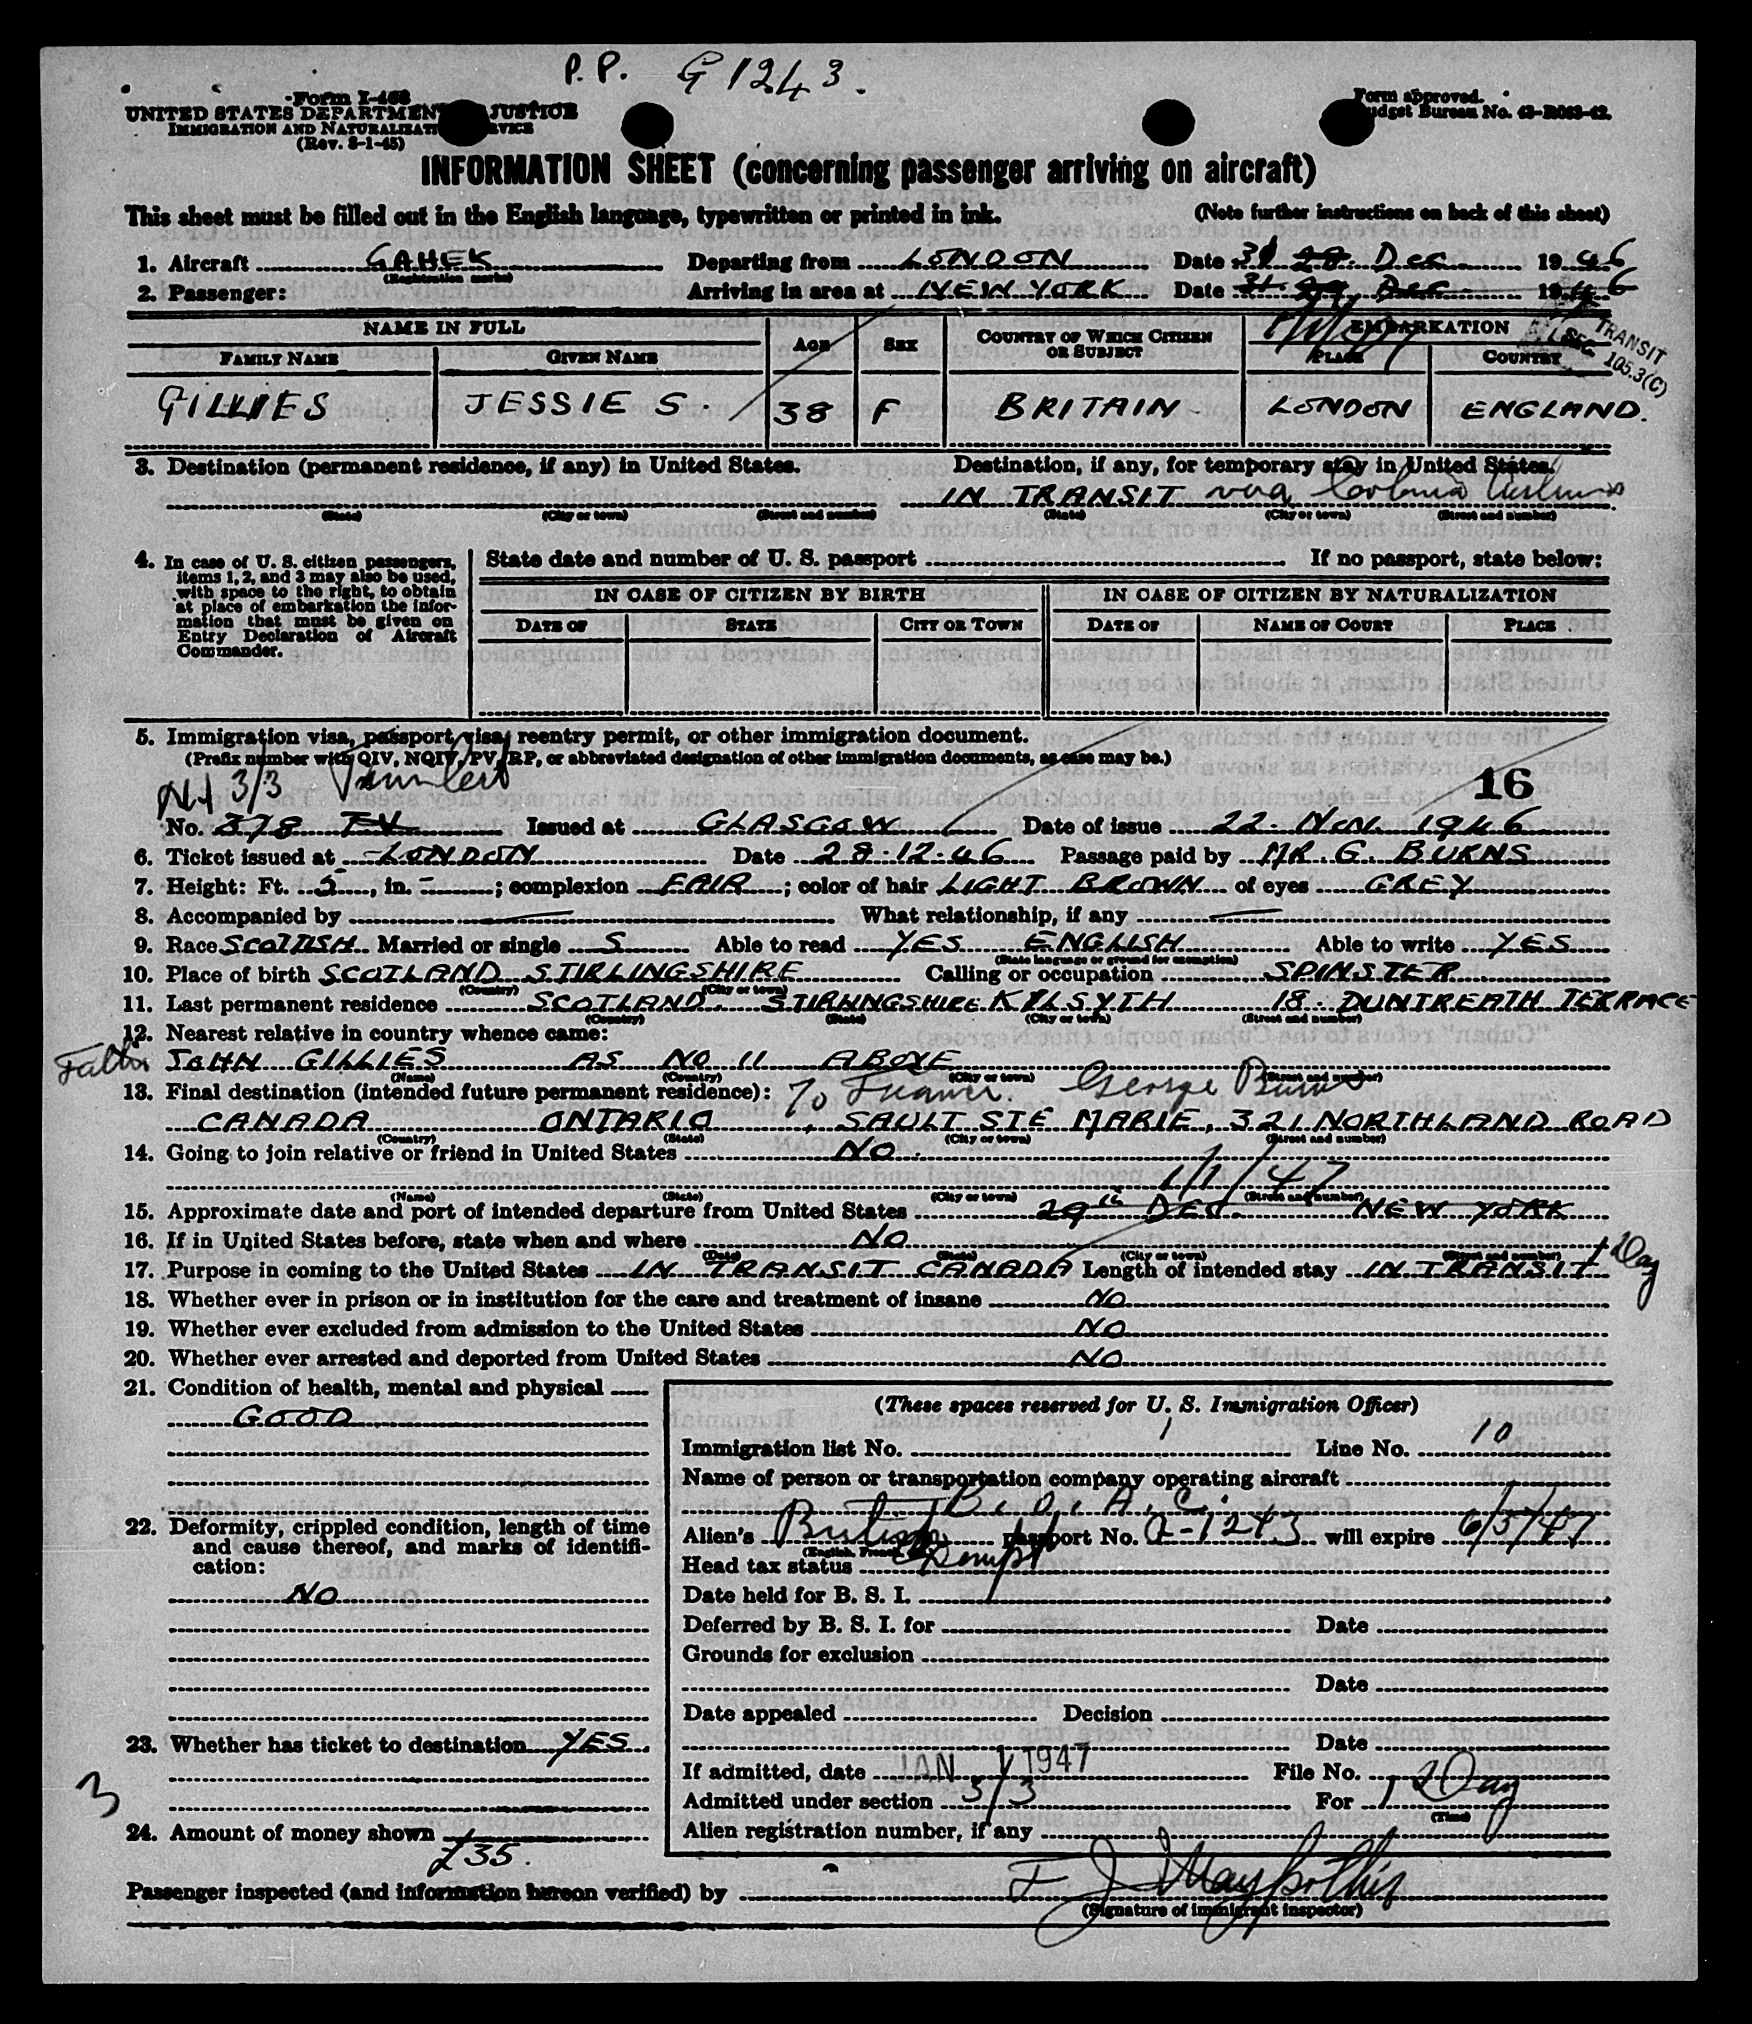 P.P. G 1243.
Form I-466
UNITED STATES DEPARTMENT JUSTICE
IMMIGRATION AND NATURALIZATI VICE
(Rev. 8-1-45)
Form approved.
Budget Bureau No. 43-R063-42.
INFORMATION SHEET (concerning passenger arriving on aircraft)
This sheet must be filled out in the English language, typewritten or printed in ink. (Note further instructions on back of this sheet)
1. Aircraft GAHEK Departing from LONDON Date 31 28 Dec 1946
(Registration marks)
2. Passenger: Arriving in area at NEW YORK Date 31 29 Dec 1946
NAME IN FULL AGE SEX COUNTRY OF WHICH CITIZEN OR SUBJECT EMBARKATION
FAMILY NAME GIVEN NAME PLACE COUNTRY
TRANSIT
SEC. 105.3(C)
GILLIES JESSIE S. 38 F BRITAIN LONDON ENGLAND.
3. Destination (permanent residence, if any) in United States. Destination, if any, for temporary stay in United States.
IN TRANSIT via
(State) (City or town) (Street and number) (State) (City or town) (Street and number)
4. In case of U. S. citizen passengers, items 1, 2, and 3 may also be used, with space to the right, to obtain at place of embarkation the information that must be given on Entry Declaration of Aircraft Commander.
State date and number of U. S. passport If no passport, state below:
IN CASE OF CITIZEN BY BIRTH IN CASE OF CITIZEN BY NATURALIZATION
DATE OF STATE CITY OR TOWN DATE OF NAME OF COURT PLACE
5. Immigration visa, passport visa, reentry permit, or other immigration document.
(Prefix number with QIV, NQIV, PV, RP, or abbreviated designation of other immigration documents, as case may be.)
3/3 16
No. 378 TV Issued at GLASGOW Date of issue 22. Nov. 1946
6. Ticket issued at LONDON Date 28.12.46 Passage paid by MR. G. BURNS
7. Height: Ft. 5, in. -; complexion FAIR; color of hair LIGHT BROWN of eyes GREY
8. Accompanied by — What relationship, if any —
9. Race SCOTTISH Married or single S Able to read YES ENGLISH Able to write YES
(State language or ground for exemption)
10. Place of birth SCOTLAND STIRLINGSHIRE Calling or occupation SPINSTER
(Country) (City or town)
11. Last permanent residence SCOTLAND. STIRLINGSHIRE KILSYTH 18. DUNTREATH TERRACE
(Country) (State) (City or town) (Street and number)
12. Nearest relative in country whence came:
Father JOHN GILLIES AS NO 11 ABOVE
(Name) (Country) (City or town) (Street and number)
13. Final destination (intended future permanent residence): To George Burns
CANADA ONTARIO, SAULT STE MARIE, 321 NORTHLAND ROAD
(Country) (State) (City or town) (Street and number)
14. Going to join relative or friend in United States NO.
1/1/47
(Name) (State) (City or town) (Street and number)
15. Approximate date and port of intended departure from United States 29th DEC. NEW YORK
16. If in United States before, state when and where NO
(Date) (State) (City or town) (Street and number)
17. Purpose in coming to the United States IN TRANSIT CANADA Length of intended stay IN TRANSIT 1 Day
18. Whether ever in prison or in institution for the care and treatment of insane NO
19. Whether ever excluded from admission to the United States NO
20. Whether ever arrested and deported from United States NO
21. Condition of health, mental and physical
GOOD
22. Deformity, crippled condition, length of time and cause thereof, and marks of identification:
NO
23. Whether has ticket to destination YES
3
24. Amount of money shown
£35.
(These spaces reserved for U. S. Immigration Officer)
Immigration list No. 1 Line No. 10
Name of person or transportation company operating aircraft
B.O.A.C.
Alien's British passport No. G-1243 will expire 6/5/47
(English, French,
Head tax status Exempt
Date held for B. S. I.
Deferred by B. S. I. for Date
Grounds for exclusion
Date
Date appealed Decision
Date
If admitted, date JAN 1 1947 File No.
Admitted under section 3/3 For 1 Day
(Time)
Alien registration number, if any
Passenger inspected (and information hereon verified) by
(Signature of immigrant inspector)